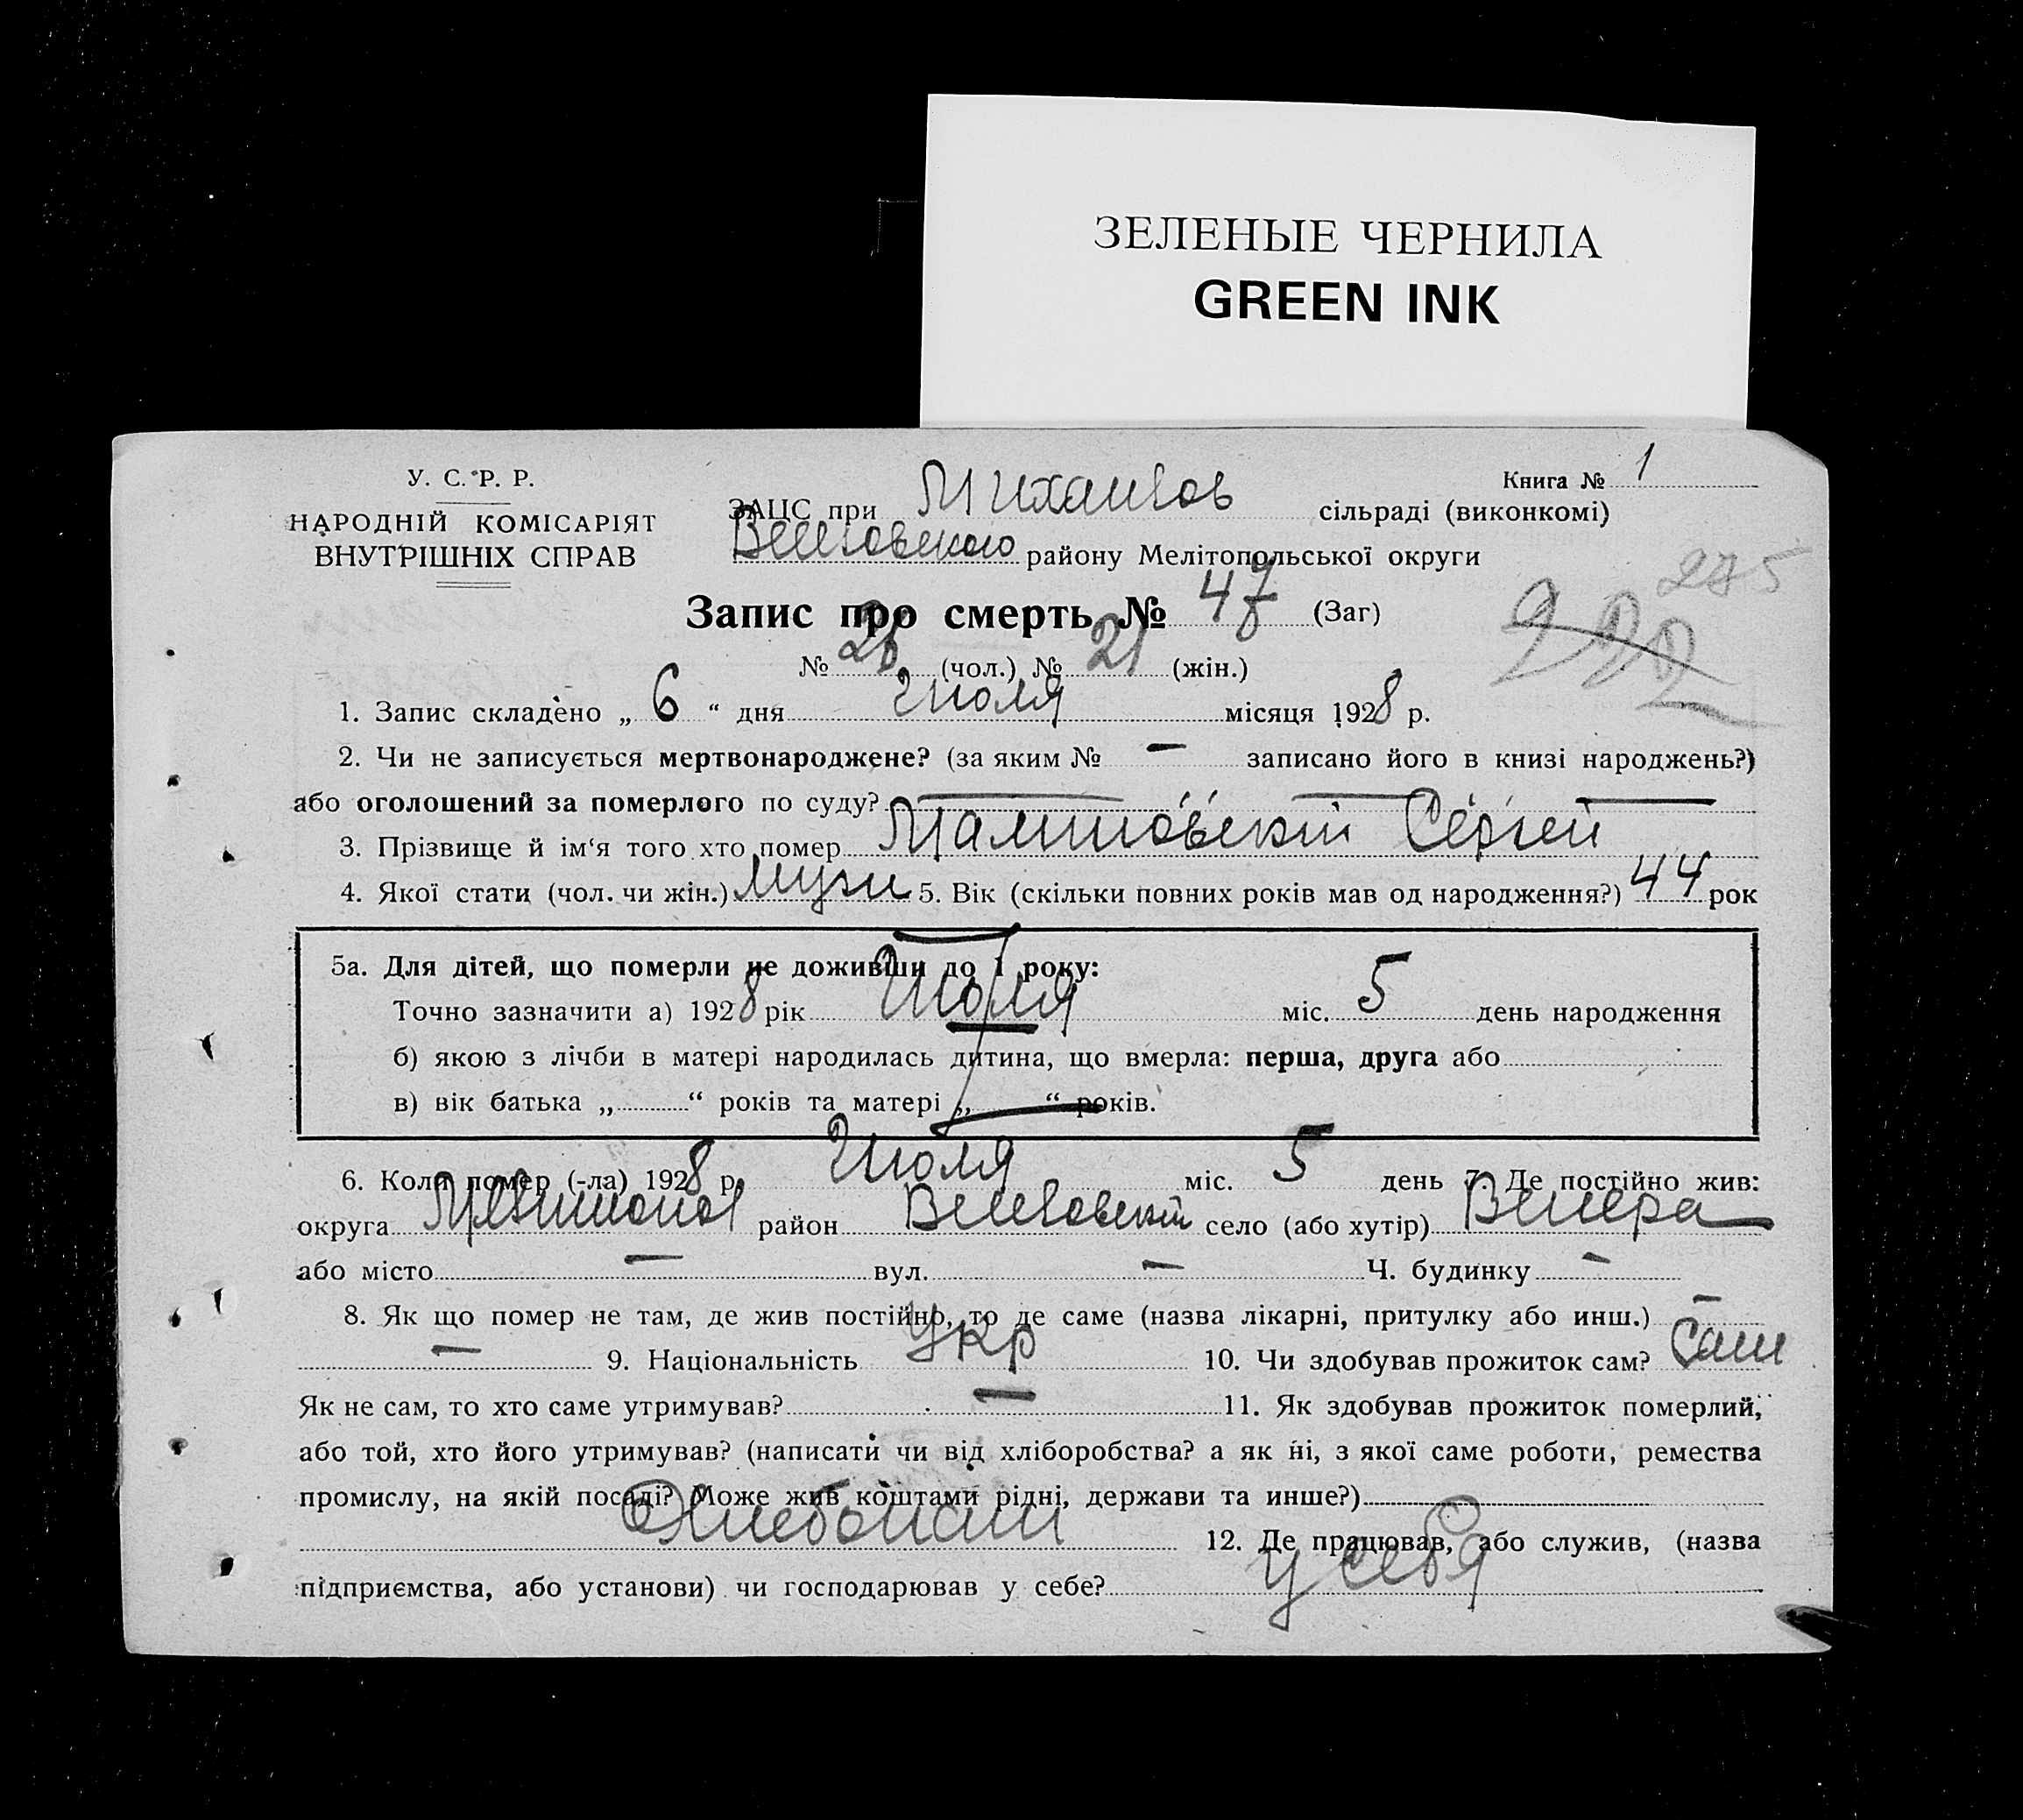 ЗЕЛЕНЫЕ ЧЕРНИЛА
GREEN INK
У. С. Р. Р.
НАРОДНІЙ КОМІСАРІЯТ
ВНУТРІШНІХ СПРАВ
Книга № 1
ЗАЦС при сільраді (виконкомі)
району Мелітопольської округи
275
Запис про смерть № 47 (Заг)
№ 26 (чол.) № 21 (жін.)
1. Запис складено „ 6 “ дня Июля місяця 1928 р.
2. Чи не записується мертвонароджене? (за яким № — записано його в книзі народжень?)
або оголошений за померлого по суду? —
3. Прізвище й ім‘я того хто помер Сергей
4. Якої стати (чол. чи жін.) муж 5. Вік (скільки повних років мав од народження?) 44 рок
5а. Для дітей, що померли не доживши до 1 року:
Точно зазначити а) 1928 рік Июля міс. 5 день народження
б) якою з лічби в матері народилась дитина, що вмерла: перша, друга або
в) вік батька „ “ років та матері „ “ років.
6. Коли помер (-ла) 1928 р. Июля міс. 5 день 7. Де постійно жив:
округа район село (або хутір) Венера
або місто — вул. — Ч. будинку —
8. Як що помер не там, де жив постійно, то де саме (назва лікарні, притулку або инш.) —
— 9. Національність Укр 10. Чи здобував прожиток сам? Сам
Як не сам, то хто саме утримував? — 11. Як здобував прожиток померлий,
або той, хто його утримував? (написати чи від хліборобства? а як ні, з якої саме роботи, ремества
промислу, на якій посаді? Може жив коштами рідні, держави та инше?)
12. Де працював, або служив, (назва
підприємства, або установи) чи господарював у себе? у себя